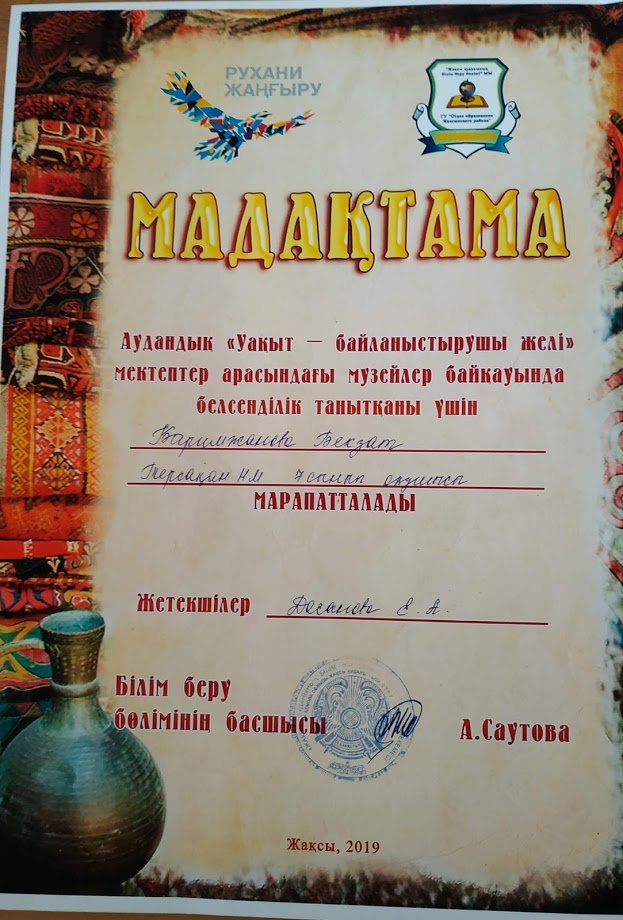 РУХАНИ
ЖАҢҒЫРУ
"Жақсы ауданының
білім беру бөлімі" ММ
ГУ "Отдел образования
Жаксынского района"
МАДАҚТАМА
Аудандық «Уақыт — байланыстырушы желі»
мектептер арасындағы музейлер байқауында
белсенділік танытқаны үшін
Каримжанова Бекзат
Терсақан НМ 7 сынып оқушысы
МАРАПАТТАЛАДЫ
Жетекшілер Досанова Е. А.
Білім беру
бөлімінің басшысы
А.Саутова
Жақсы, 2019